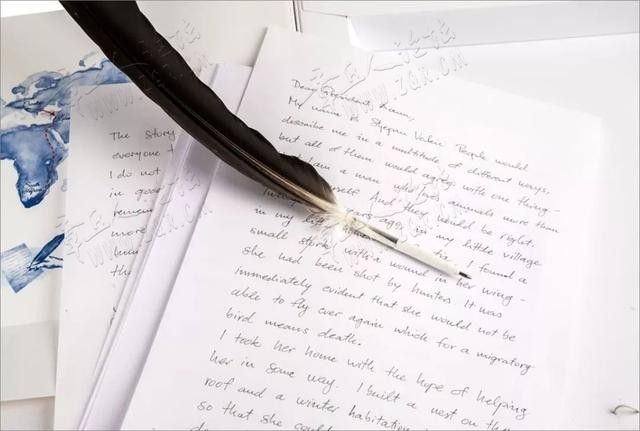 The Story
everyone
I do not
in good
more
Dear President Aoun,
My name is Stjepan Vokić. People would
describe me in a multitude of different ways,
but all of them would agree with one thing -
I am a man who loves animals more than
myself. And they would be right.
years ago, in my little village
in my life I found a
small stork with a wound in her wing -
she had been shot by hunters. It was
immediately evident that she would not be
able to fly ever again which for a migratory
bird means death.
I took her home with the hope of helping
her in some way. I built a nest on the
roof and a winter habitation
so that she could